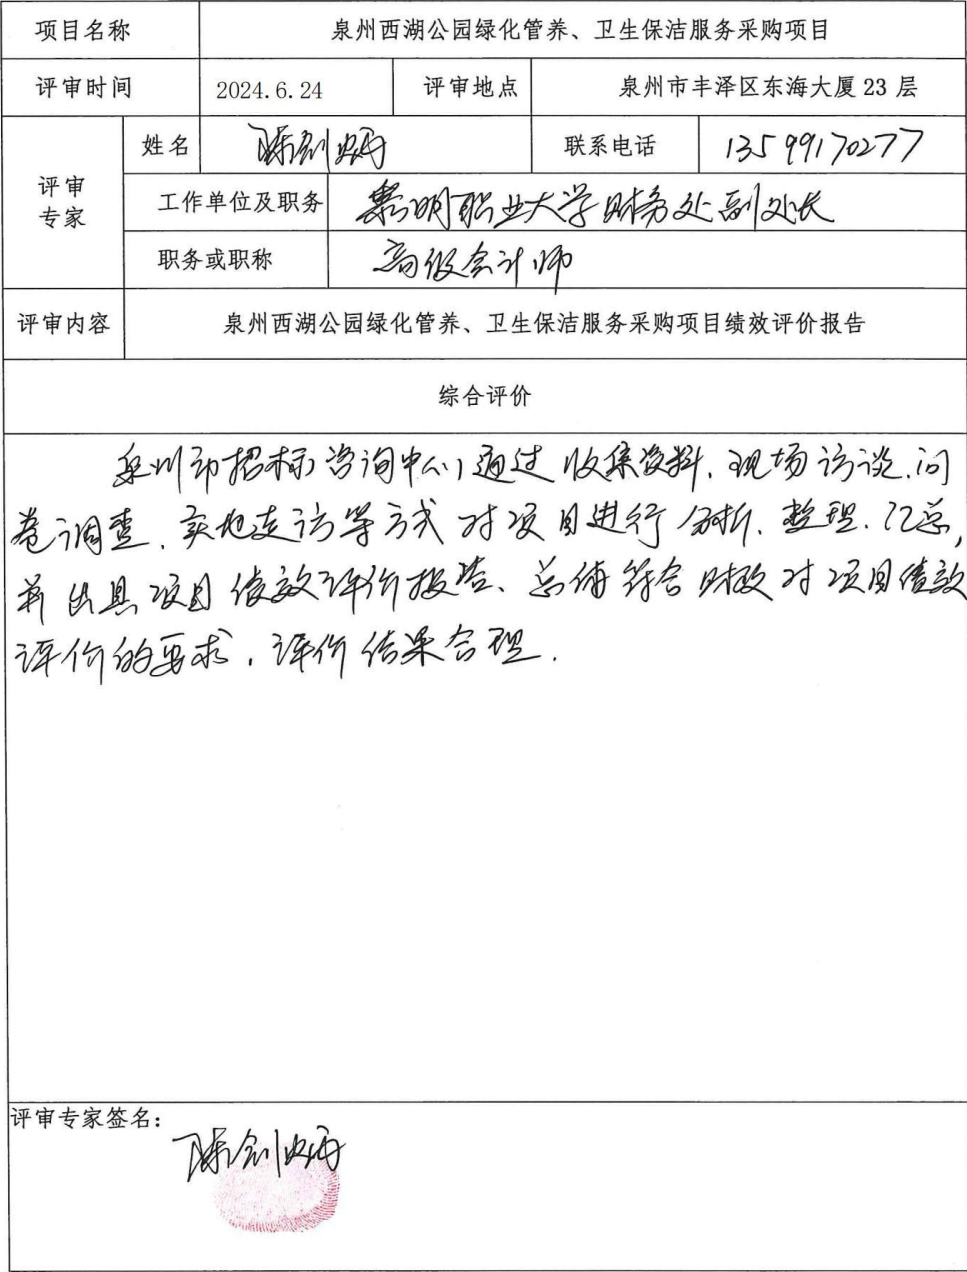 项目名称 泉州西湖公园绿化管养、卫生保洁服务采购项目
评审时间 2024.6.24 评审地点 泉州市丰泽区东海大厦 23 层
评审专家 姓名 陈创炳 联系电话 13599170277
工作单位及职务 黎明职业大学财务处副处长
职务或职称 高级会计师
评审内容 泉州西湖公园绿化管养、卫生保洁服务采购项目绩效评价报告
综合评价
泉州市招标咨询中心通过收集资料、现场访谈、问
卷调查、实地走访等方式对项目进行分析、整理、汇总,
并出具项目绩效评价报告、总体符合财政对项目绩效
评价的要求,评价结果合理.
评审专家签名:
陈创炳